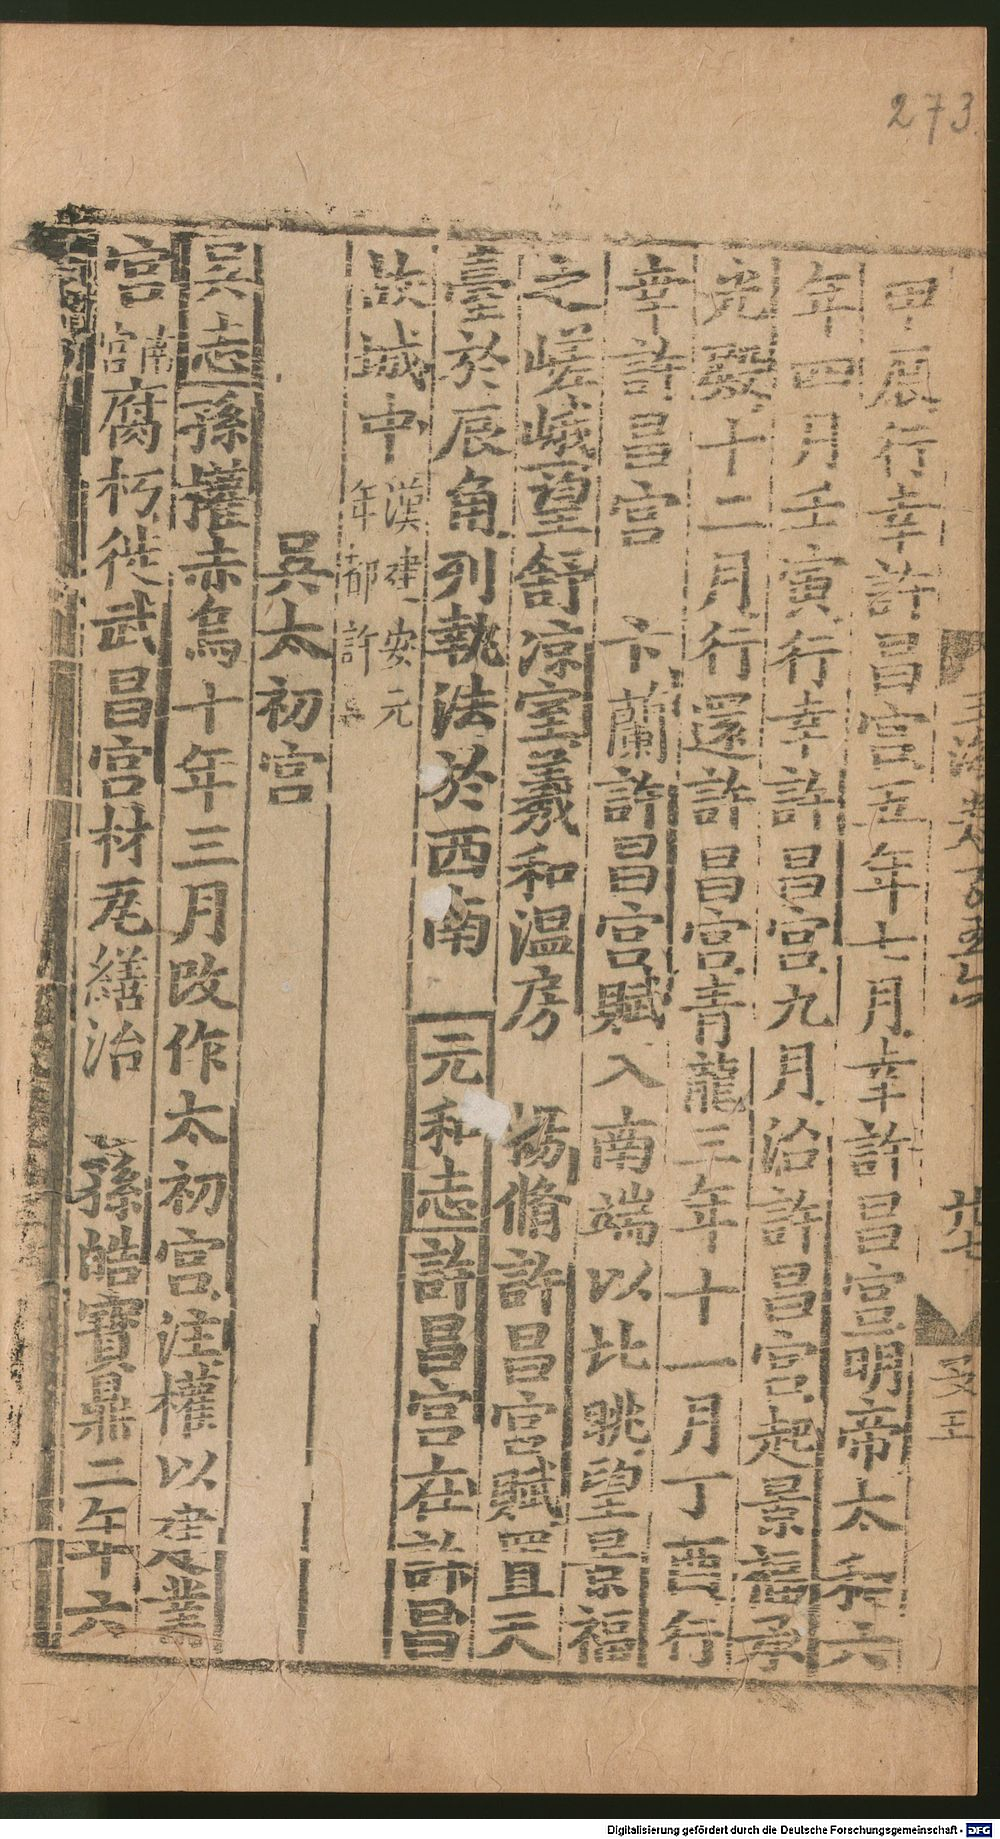 273
甲辰行幸許昌宮五年七月幸許昌宮明帝太和六
年四月壬寅行幸許昌宮九月治許昌宮起景福承
光殿十二月行還許昌宮青龍三年十一月丁酉行
幸許昌宮　卞蘭許昌宮賦入南端以北眺望景福
之嵯峨望舒凉室羲和溫房　楊脩許昌宮賦置天
臺於辰角列執法於西南　元和志許昌宮在許昌
故城中漢建安元年都許
吳太初宮
吳志孫權赤烏十年三月改作太初宮注權以建業
宮南宮腐朽徙武昌宮材瓦繕治　孫皓寶鼎二年六
Digitalisierung gefördert durch die Deutsche Forschungsgemeinschaft - DFG